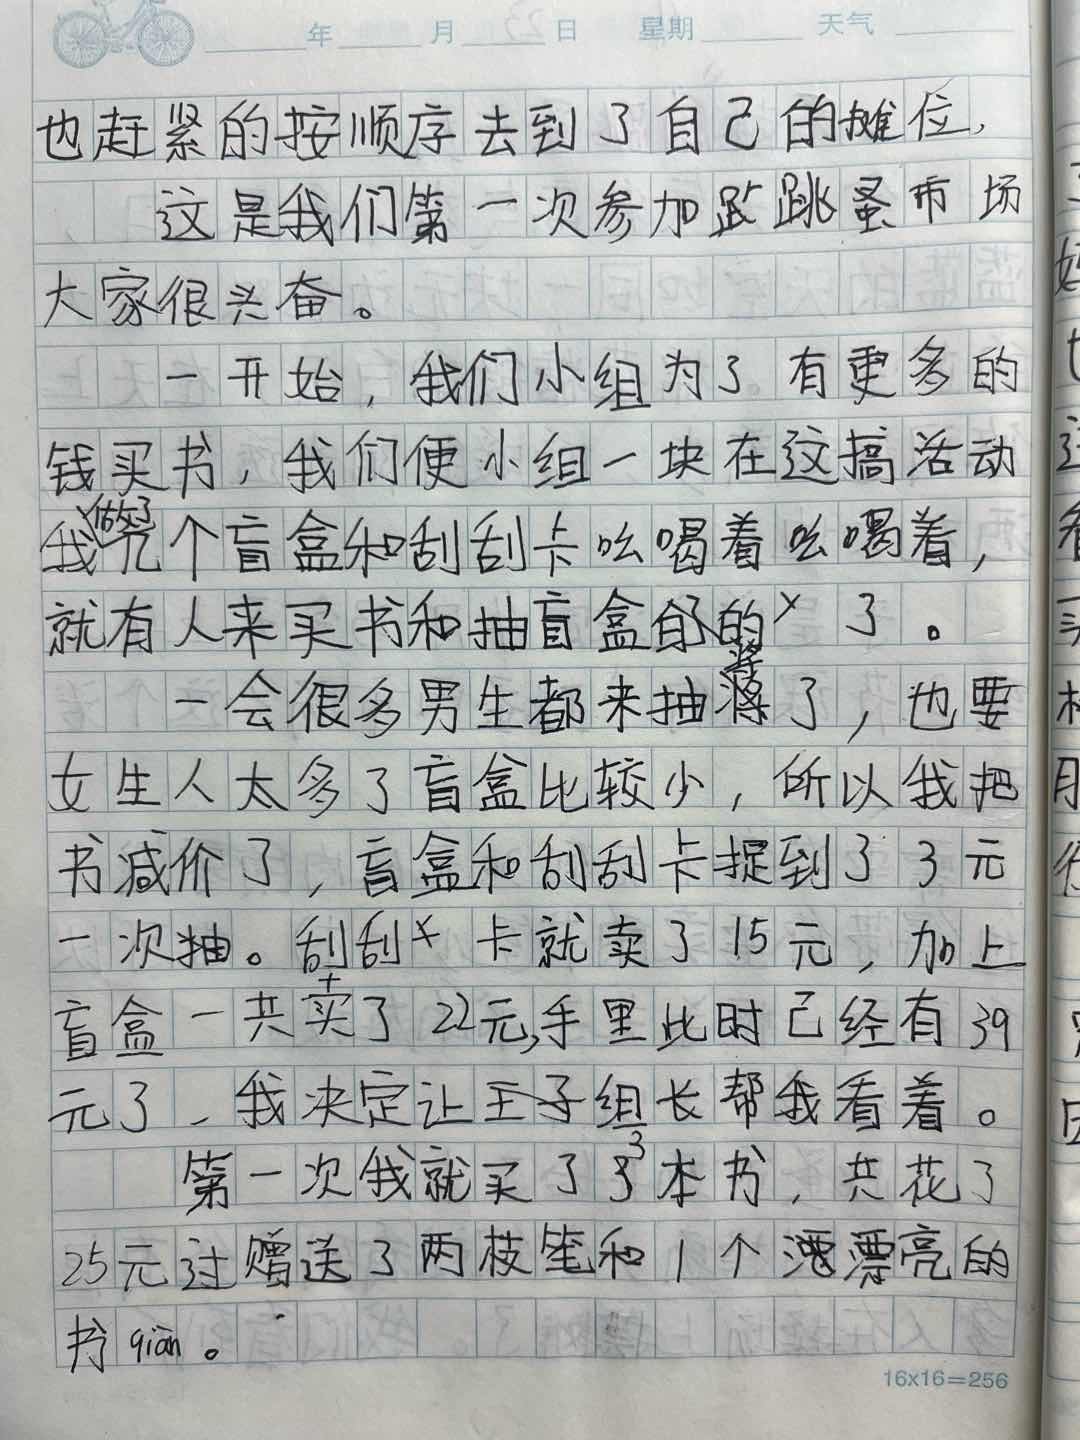 年 月 日 星期 天气
也赶紧的按顺序去到了自己的摊位,
这是我们第一次参加跳蚤市场
大家很兴奋。
一开始,我们小组为了有更多的
钱买书,我们便小组一块在这搞活动
我做了几个盲盒和刮刮卡吆喝着吆喝着,
就有人来买书和抽盲盒的了。
一会很多男生都来抽奖了,也要
女生人太多了盲盒比较少,所以我把
书减价了,盲盒和刮刮卡提到了3元
一次抽。刮刮卡就卖了15元,加上
盲盒一共卖了22元,手里此时已经有39
元了,我决定让王子组长帮我看着。
第一次我就买了3本书,共花了
25元过赠送了两枝笔和1个漂亮的
书qiān。
16x16=256